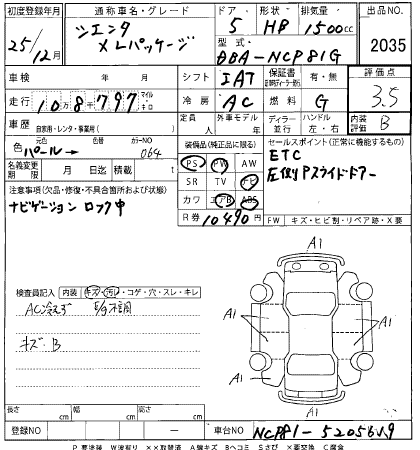 初度登録年月 通称車名・グレード ドア 形状 排気量 出品NO.
25/12月 シエンタ Xレパッケージ 5 HB 1500cc 2035
型式 DBA-NCP81G
車検 年 月 シフト IAT 保証書 有・無 評価点
走行 10万8千797 マイル キロ 冷房 AC 燃料 G 3.5
車歴 自家用・レンタ・事業用( ) 定員 人 外車モデル 年 ディーラー 並行 ハンドル 左・右 内装 B
色 パール→ 元色 色替 カラーNO 064 装備品(純正品に限る) セールスポイント(正常に機能するもの)
名義変更期限 月 日迄 積載 t PS PW AW ETC
注意事項(欠品・修復・不具合箇所および状態) SR TV ナビ 左側Pスライドドアー
ナビゲーション ロック中 カワ エアB ABS
R券 10490円 FW キズ・ヒビ割・リペア跡・X要
検査員記入 内装 キズ・汚レ・コゲ・穴・スレ・キレ
AC冷えず E/g不調
キズ:B
A1
A1
A1
A1
A1
長さ cm 幅 cm 高さ cm
登録NO ー 車台NO NCP81-5205649
P要塗装 W波有り XX取替済 A線キズ Bヘコミ Sサビ X要交換 C腐食